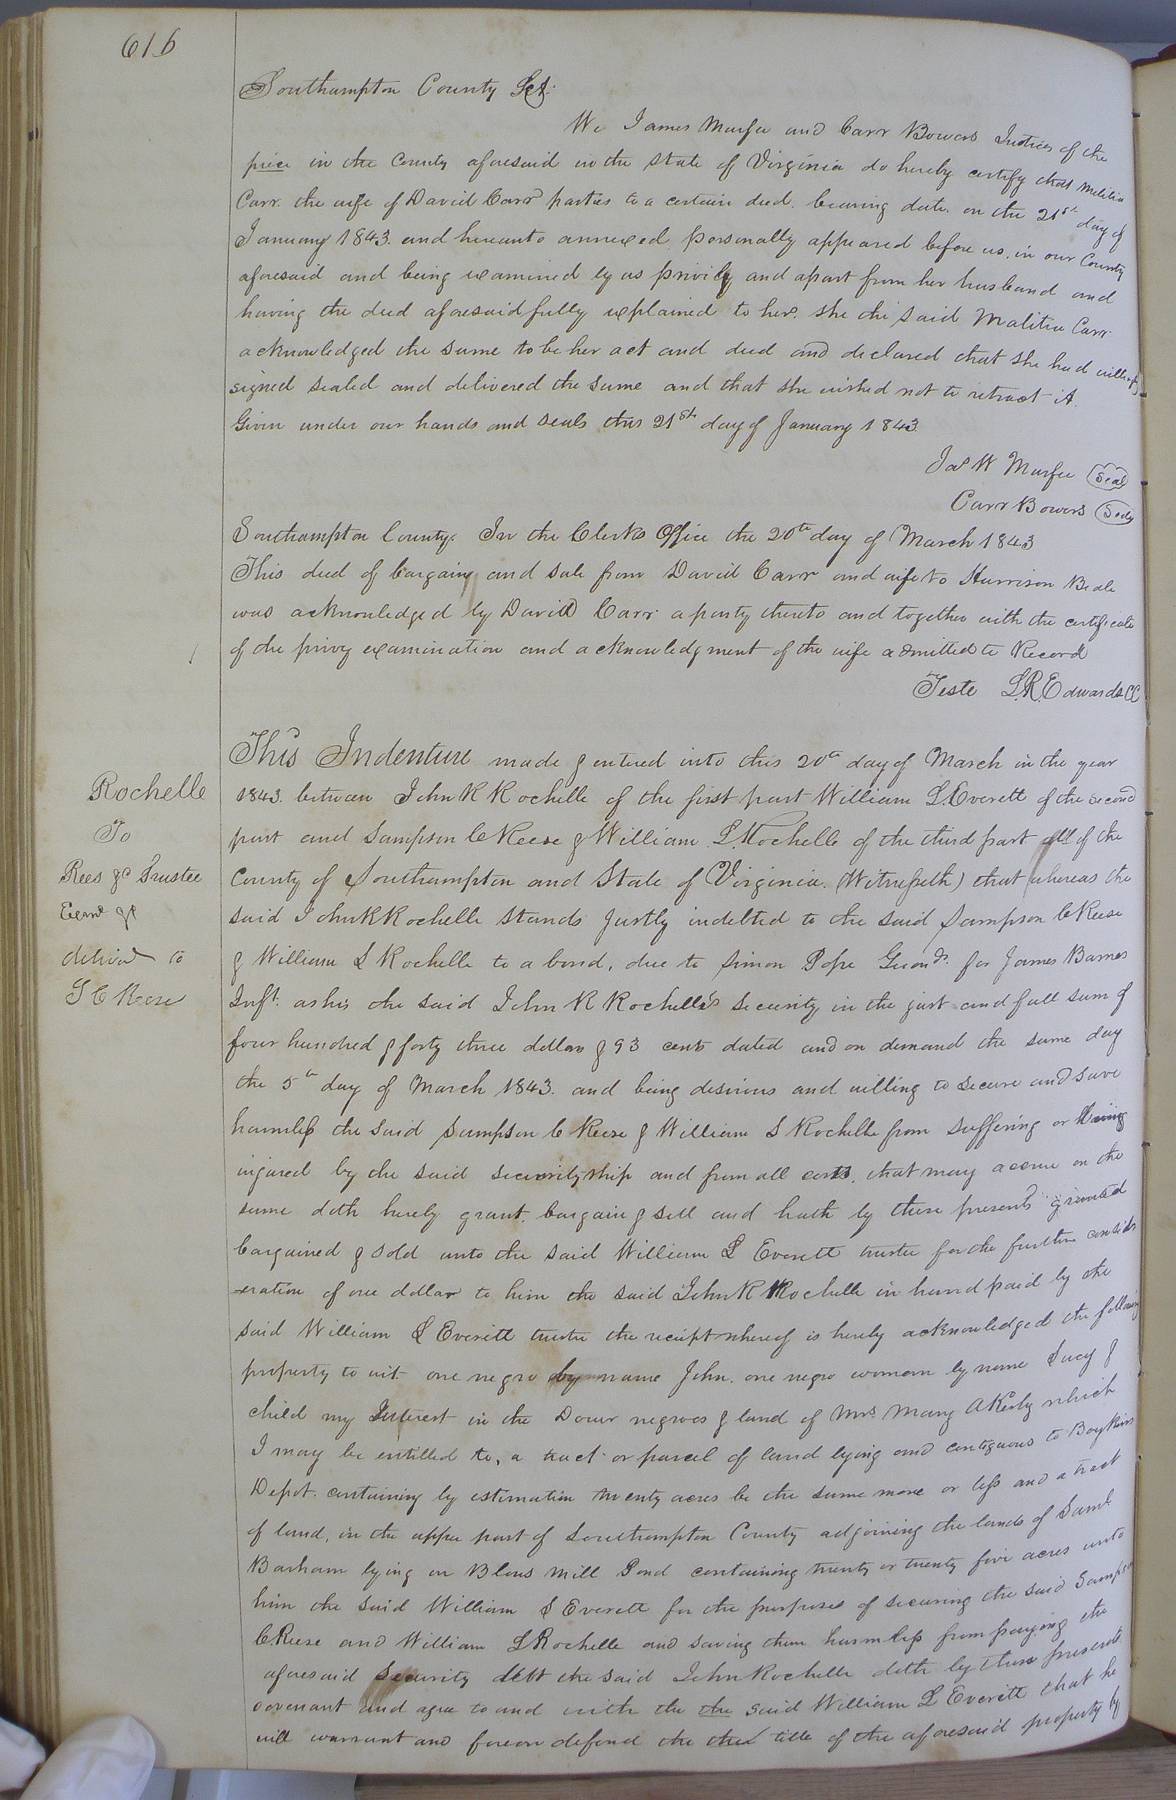 616
Southampton County Sct:
We James Murfee and Carr Bowers Justices of the
piece in the County aforesaid in the State of Virginia do hereby certify that Malitia
Carr. the wife of David Carr parties to a certain deed. bearing date. on the 21st day of
January 1843. and hereunto annexed, personally appeared before us. in our County
aforesaid and being examined by us privily and apart from her husband and
having the deed aforesaid fully explained to her. she the said Malitia Carr.
acknowledged the same to be her act and deed and declared that she had willingly
signed sealed and delivered the same and that she wished not to retract it.
Given under our hands and seals this 21st day of January 1843.
Jas W Murfee (Seal)
Carr Bowers (Seal)
Southampton County. In the Clerks Office the 20th day of March 1843
This deed of bargain and sale from David Carr and wife to Harrison Beale
was acknowledged by David Carr a party thereto and together with the certificate
of the privy examination and acknowledgment of the wife admitted to Record
Teste L.R. Edwards CC
Rochelle
To
Rees &c Trustee
delived to
S C Reese
This Indenture made & entered into this 20th day of March in the year
1843. between John R Rochelle of the first part William L Everett of the second
part and Sampson C Reese & William L. Rochelle of the third part all of the
County of Southampton and State of Virginia. (Witnesseth) that whereas the
said John R Rochelle stands justly indebted to the said Sampson C Reese
& William L Rochelle to a bond, due to Simon Pope Guond. for James Barnes
Inft. as his the said John R Rochelle's security in the just and full sum of
four hundred & forty three dollars & 93 cents dated and on demand the same day
the 5th day of March 1843. and being desirous and willing to secure and save
harmless the said Sampson C Reese & William L Rochelle from suffering or being
injured by the said securityship and from all costs. that may accrue on the
same doth hereby grant. bargain & sell and hath by these presents granted
bargained & sold unto the said William L Everett trustee for the further consid
-eration of one dollar to him the said John R Rochelle in hand paid by the
said William L Everett trustee the receipt whereof is hereby acknowledged the following
property to wit one negro by name John. one negro woman by name Lucy &
child my Interest in the Dower negroes & land of Mrs. Mary A Kerby which
I may be entitled to, a tract or parcel of land lying and contiguous to Boykins
Depot. containing by estimation twenty acres be the same more or less and a tract
of land, in the upper part of Southampton County adjoining the lands of Saml.
Barham lying on Blows Mill Pond containing twenty or twenty five acres unto
him the said William L Everett for the purposes of securing the said Sampson
C Reese and William L Rochelle and saving them harmless from paying the
aforesaid Security debt the said John Rochelle doth by these presents
covenant and agree to and with the the said William L Everett that he
will warrant and forever defend the the title of the aforesaid property by